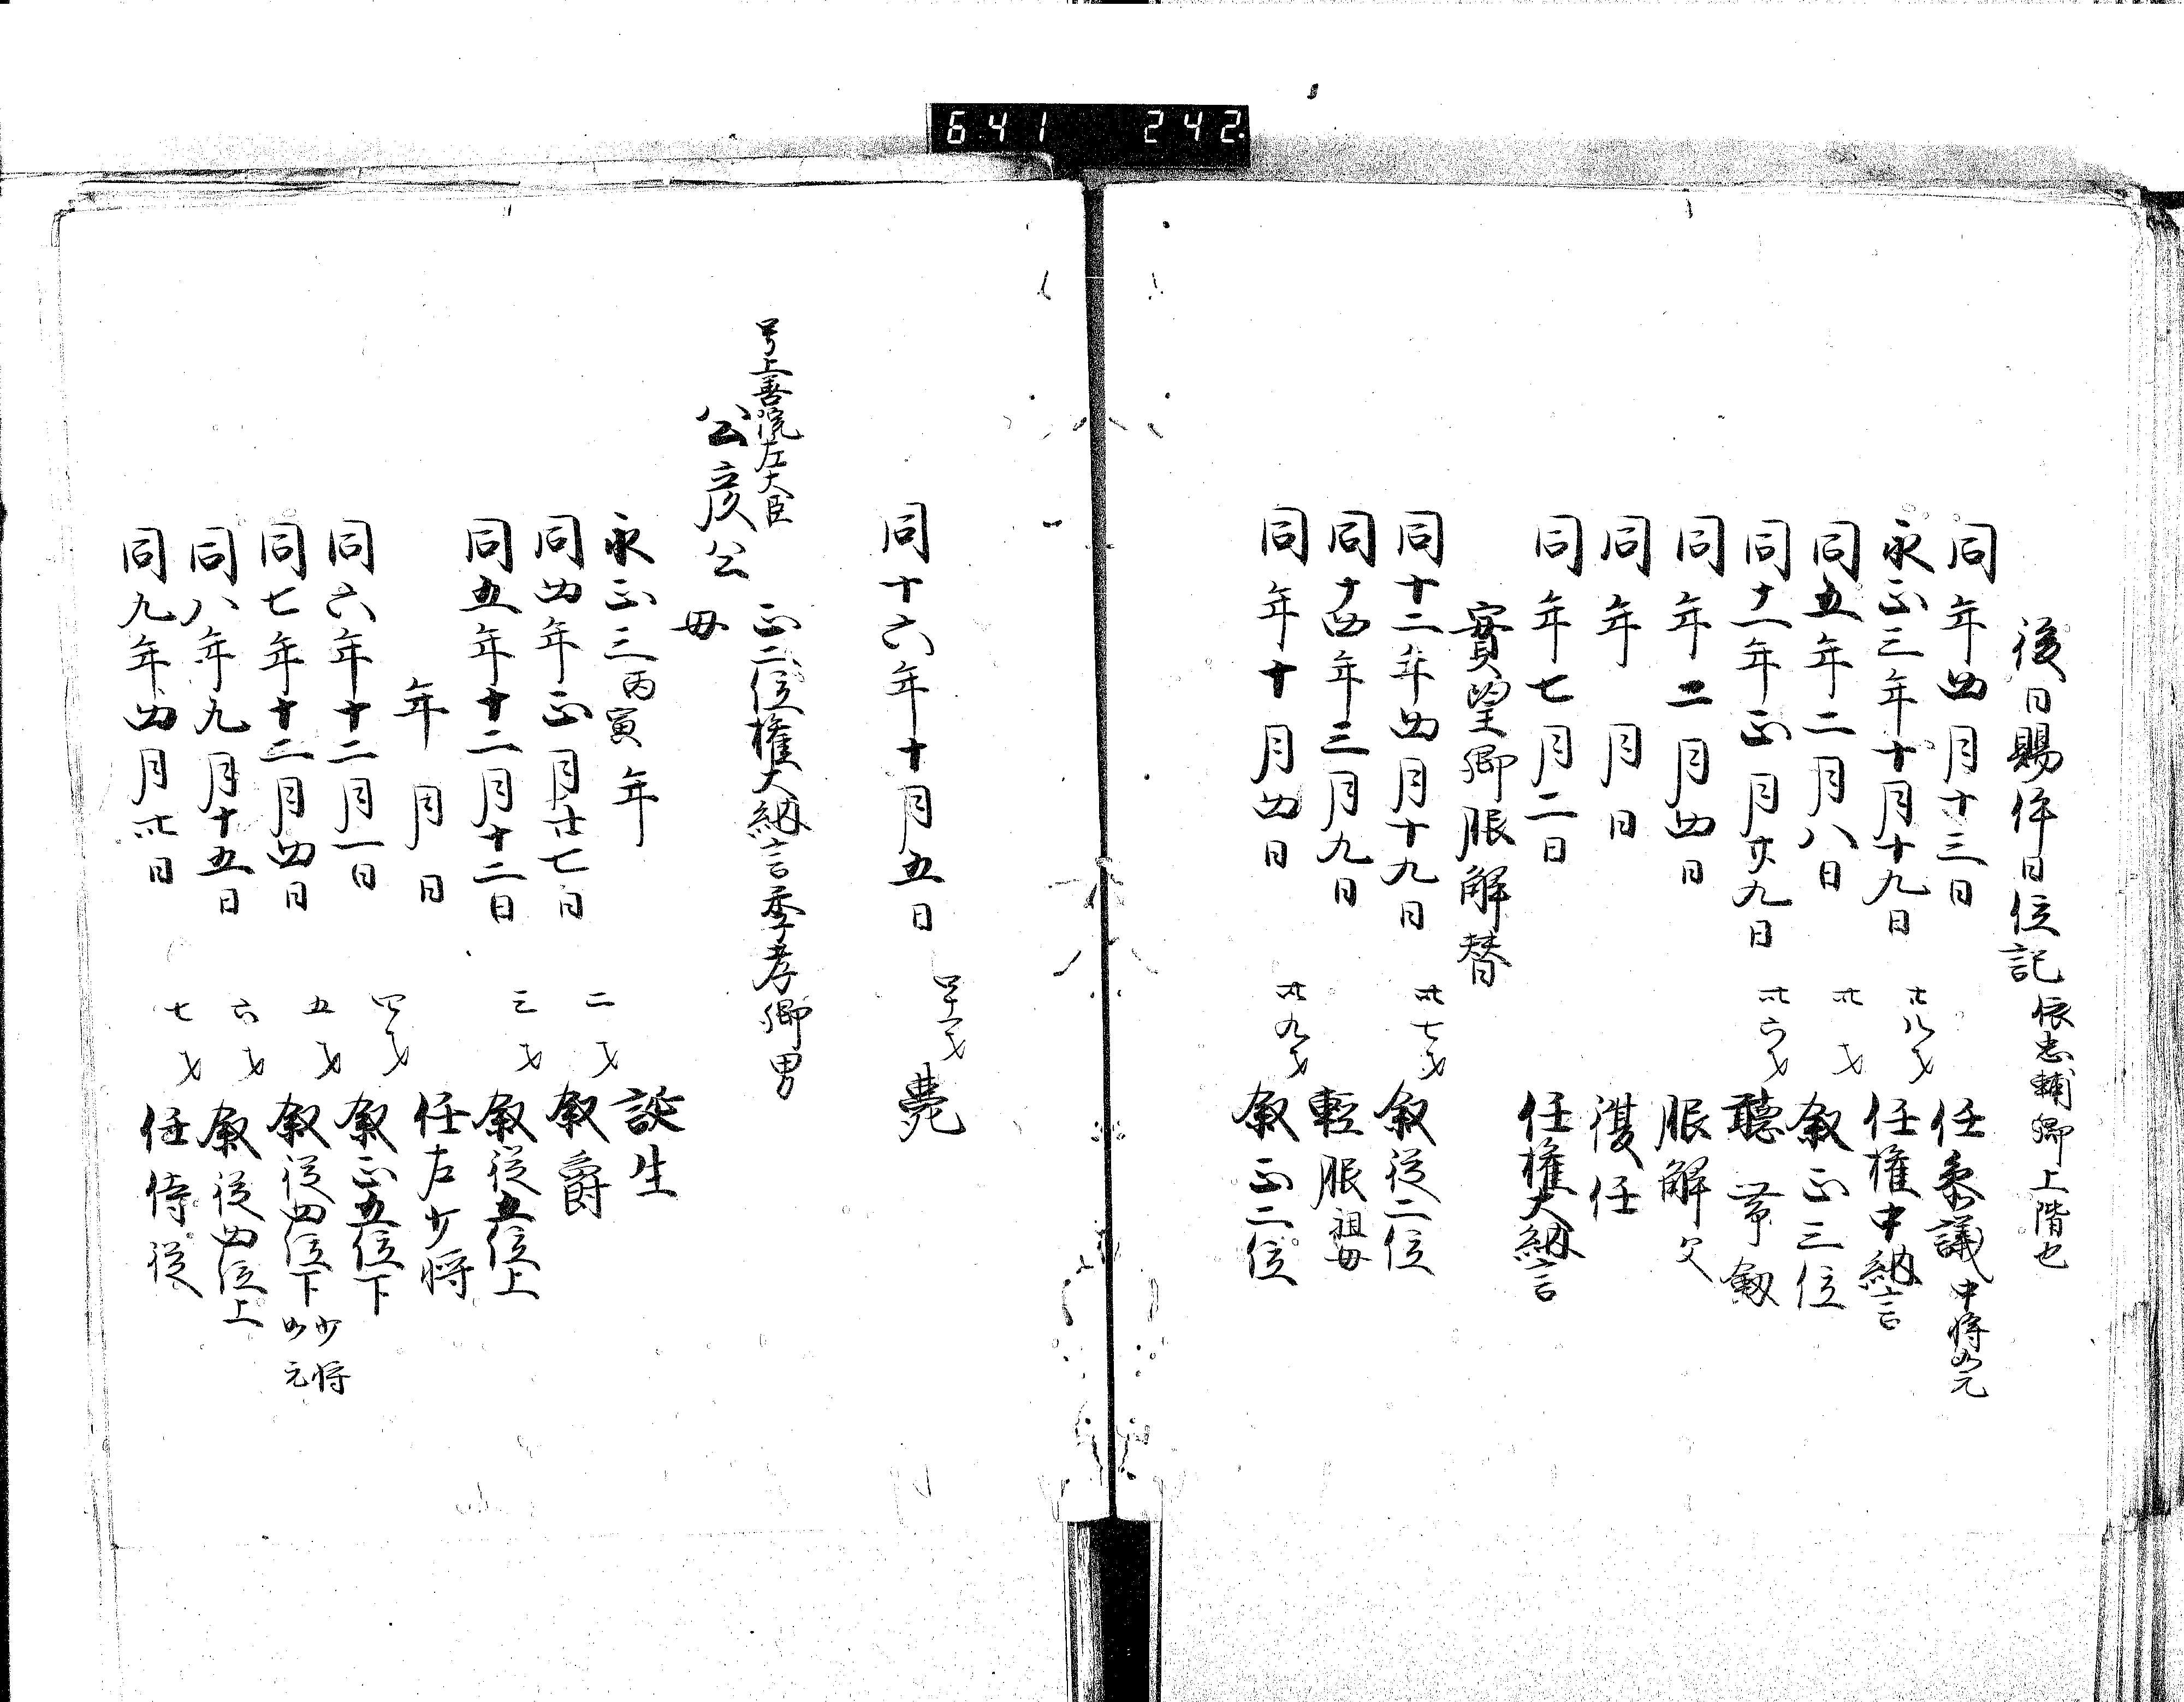 641 242
後日賜件日位記 依忠輔卿上階也
同年四月十三日 任参議 中将如元
永正三年十月十九日 廿八才 任権中納言
同五年二月八日 卅才 叙正三位
同十一年正月廿九日 卅六才 聴帯剱
同年二月四日 服解 父
同年月日 復任
同年七月二日 任権大納言
實望卿服解替
同十二年四月十九日 卅七才 叙従二位
同十四年三月九日 軽服 祖母
同年十月四日 卅九才 叙正二位
同十六年十月五日 四十一才 薨
号上善院左大臣
公彦公 正二位権大納言季孝卿男
母
永正三丙寅年 誕生
同四年正月廿七日 二才 叙爵
同五年十二月十二日 三才 叙従五位上
年月日 任左少将
同六年十二月一日 四才 叙正五位下
同七年十二月四日 五才 叙従四位下 少将如元
同八年九月十五日 六才 叙従四位上
同九年四月卅日 七才 任侍従